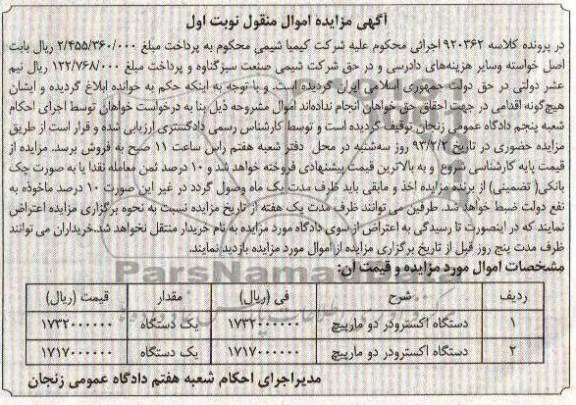 آگهی مزایده اموال منقول نوبت اول
در پرونده کلاسه ۹۲۰۳۶۲ اجرائی محکوم علیه شرکت کیمیا شیمی محکوم به پرداخت مبلغ ۲/۴۵۵/۳۶۰/۰۰۰ ریال بابت
اصل خواسته وسایر هزینه‌های دادرسی و در حق شرکت شیمی صنعت سبزگناوه و پرداخت مبلغ ۱۲۲/۷۶۸/۰۰۰ ریال نیم
عشر دولتی در حق دولت جمهوری اسلامی ایران گردیده است. و با توجه به اینکه حکم به خوانده ابلاغ گردیده و ایشان
هیچ‌گونه اقدامی در جهت احقاق حق خواهان انجام نداده‌اند اموال مشروحه ذیل بنا به درخواست خواهان توسط اجرای احکام
شعبه پنجم دادگاه عمومی زنجان توقیف گردیده است و توسط کارشناس رسمی دادگستری ارزیابی شده و قرار است از طریق
مزایده حضوری در تاریخ ۹۳/۲/۲ روز سه‌شنبه در محل دفتر شعبه هفتم راس ساعت ۱۱ صبح به فروش برسد. مزایده از
قیمت پایه کارشناسی شروع و به بالاترین قیمت پیشنهادی فروخته خواهد شد و ۱۰ درصد ثمن معامله نقدا یا به صورت چک
بانکی( تضمینی) از برنده مزایده اخذ و مابقی باید ظرف مدت یک ماه وصول گردد در غیر این صورت ۱۰ درصد ماخوذه به
نفع دولت ضبط خواهد شد. طرفین می توانند ظرف مدت یک هفته از تاریخ مزایده نسبت به نحوه برگزاری مزایده اعتراض
نمایند که در اینصورت تا رسیدگی به اعتراض از سوی دادگاه مورد مزایده به نام خریدار منتقل نخواهد شد.خریداران می توانند
ظرف مدت پنج روز قبل از تاریخ برگزاری مزایده از اموال مورد مزایده بازدید نمایند.
مشخصات اموال مورد مزایده و قیمت آن:
ردیف شرح فی (ریال) مقدار قیمت (ریال)
۱ دستگاه اکسترودر دو مارپیچ ۱۷۳۲۰۰۰۰۰۰ یک دستگاه ۱۷۳۲۰۰۰۰۰۰
۲ دستگاه اکسترودر دو مارپیچ ۱۷۱۷۰۰۰۰۰۰ یک دستگاه ۱۷۱۷۰۰۰۰۰۰
مدیراجرای احکام شعبه هفتم دادگاه عمومی زنجان